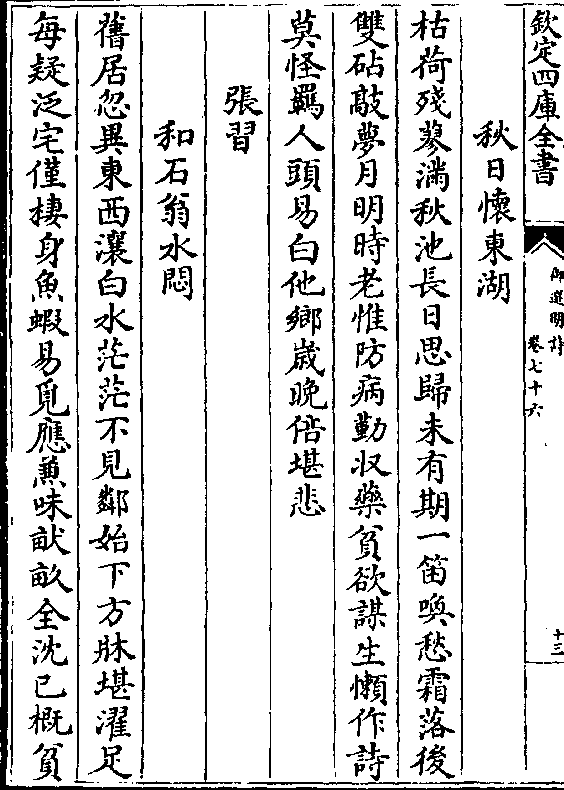 欽定四庫全書
御選明詩
卷七十六
十三
秋日懷東湖
枯荷殘蓼滿秋池長日思歸未有期一笛喚愁霜落後
雙砧敲夢月明時老惟防病勤収藥貧欲謀生懶作詩
莫怪羈人頭易白他鄉歲晚倍堪悲
張習
和石翁水悶
舊居忽異東西瀼白水茫茫不見鄰始下方牀堪濯足
每疑泛宅僅棲身魚蝦易覓應兼味畎畝全沈已概貧